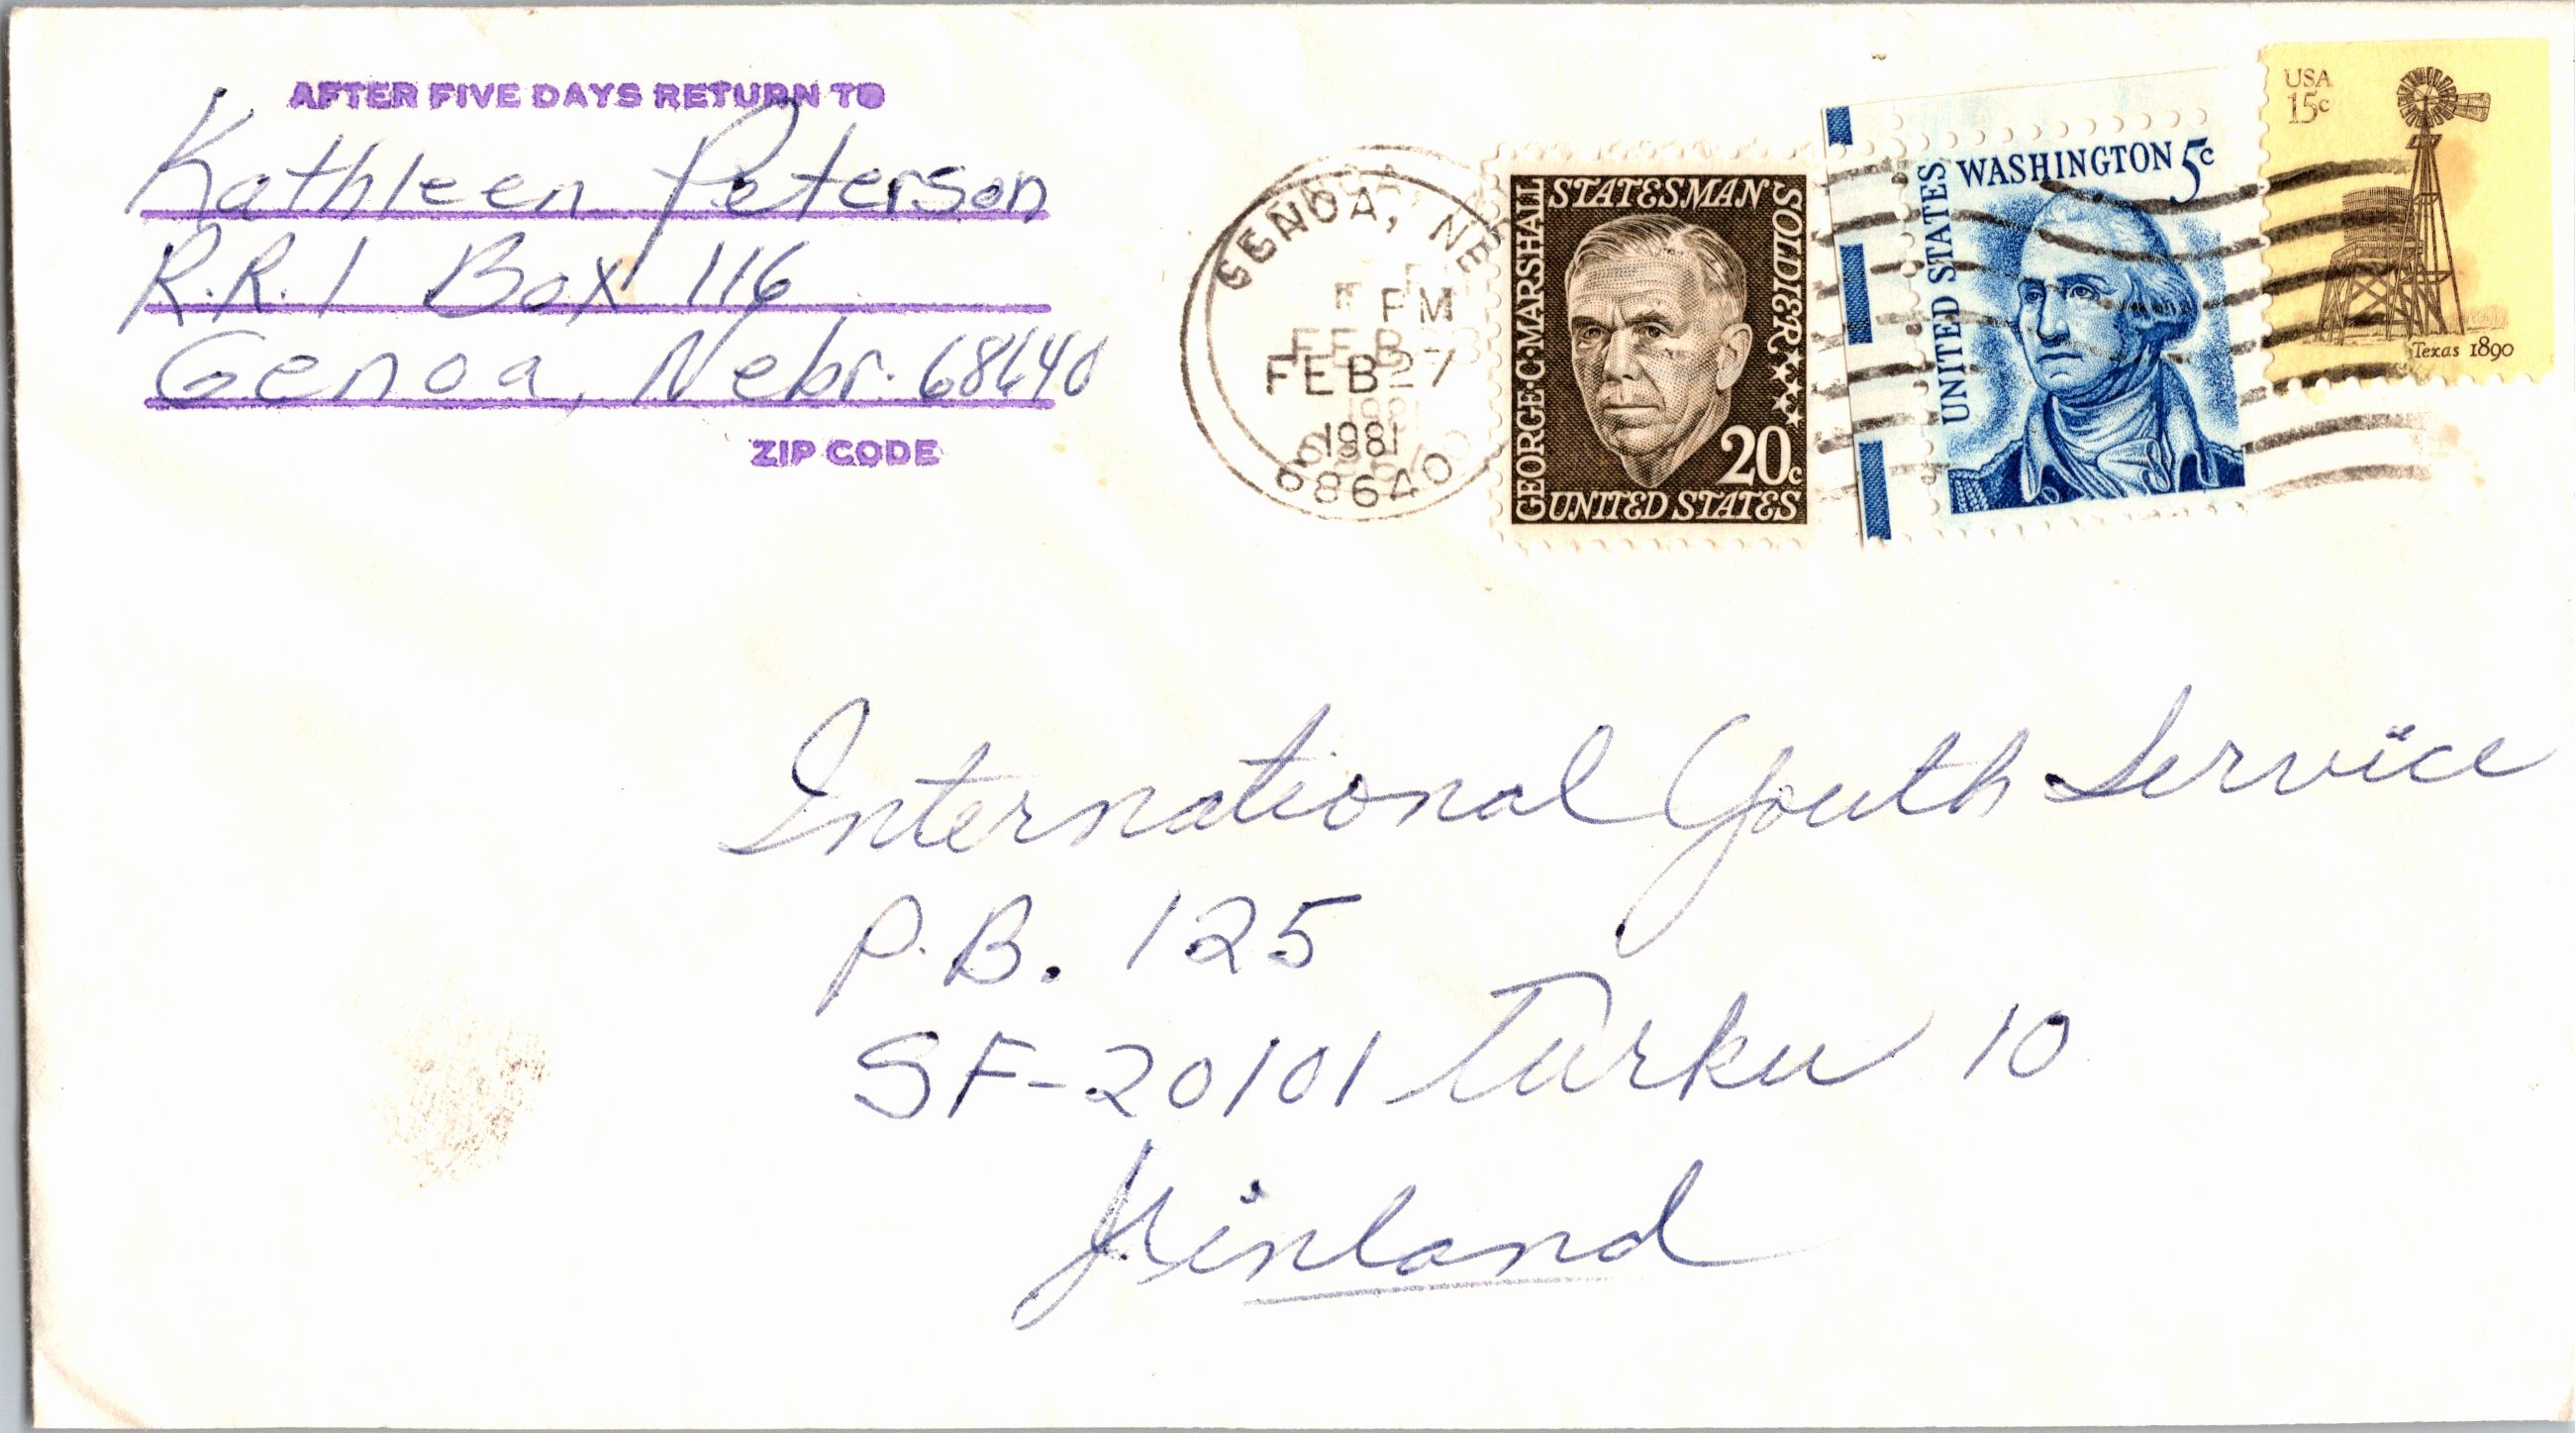 AFTER FIVE DAYS RETURN TO
Kathleen Peterson
R.R. 1 Box 116
Genoa, Nebr. 68640
ZIP CODE
GENOA, NE
PM
FEB 27
1981
68640
GEORGE·C·MARSHALL
STATESMAN
SOLDIER
20c
UNITED STATES
UNITED STATES
WASHINGTON 5c
USA
15c
Texas 1890
International Youth Service
P.B. 125
SF-20101 Turku 10
Finland